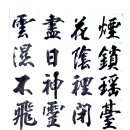 煙鎖瑶臺
花陰裡閉
盡日神靈
雲濕不飛